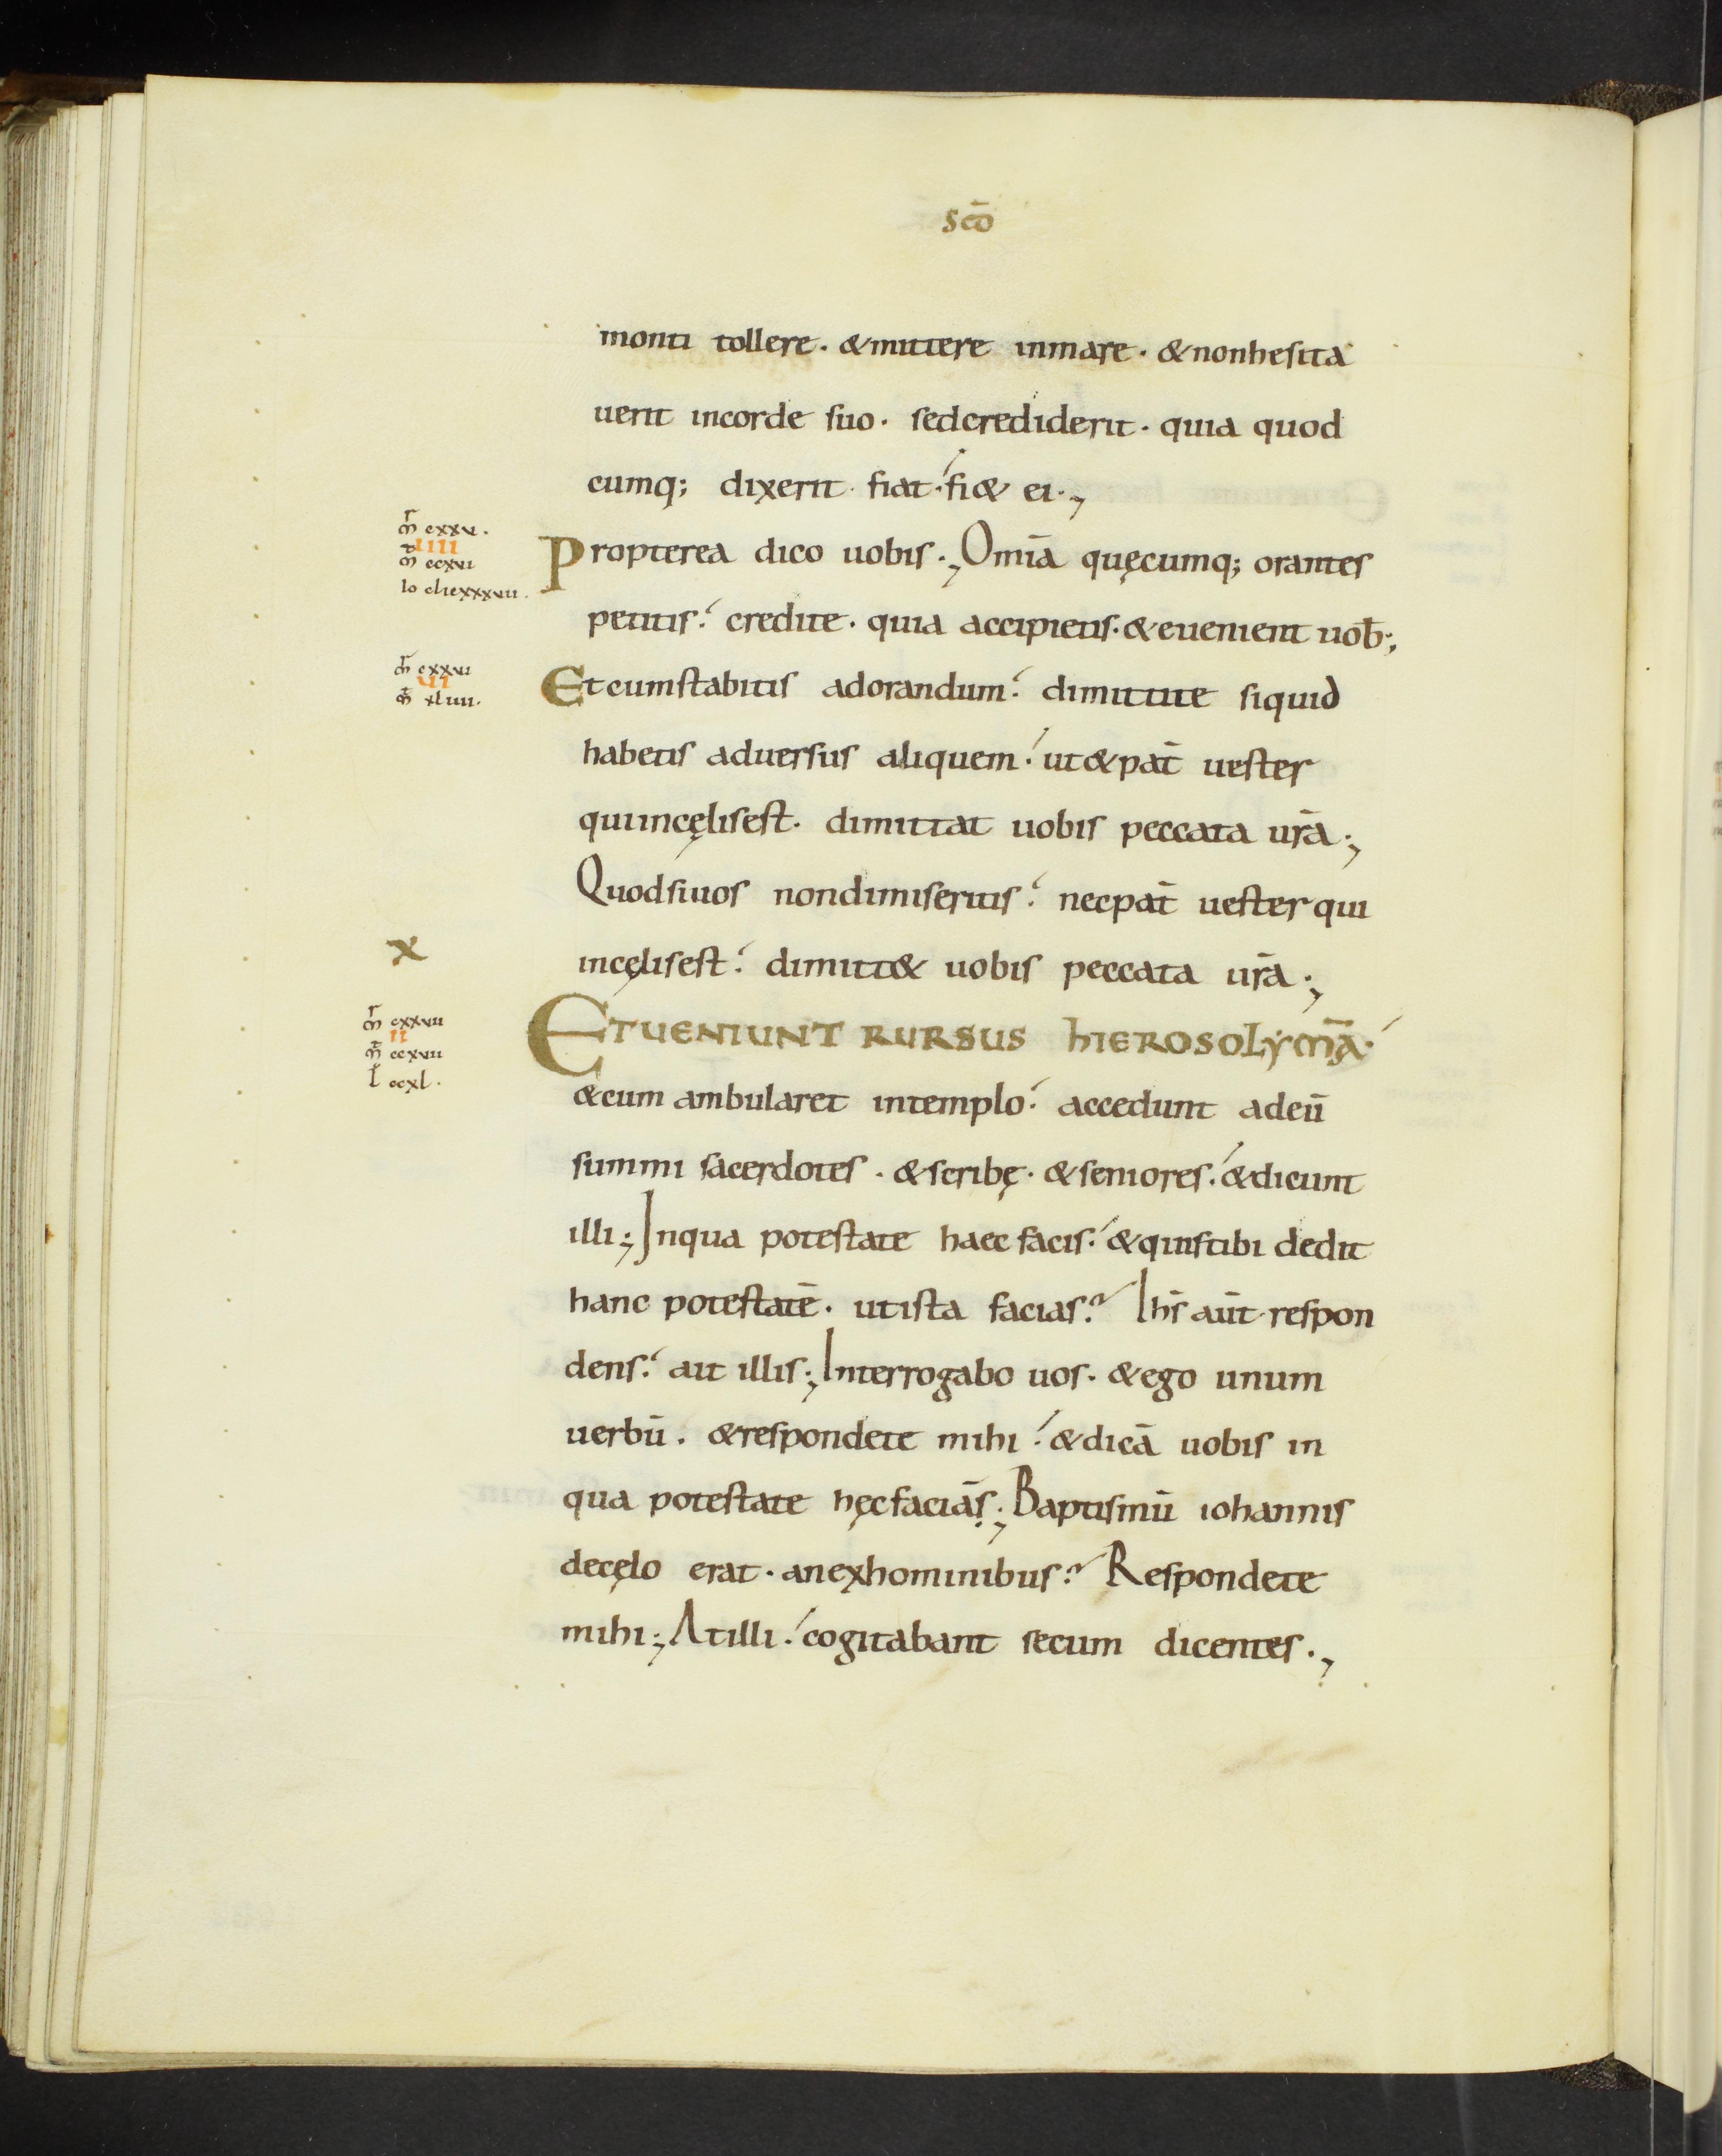 scō
monti tollere. & mittere inmare. & nonhesita
uerit incorde suo. sedcrediderit. quia quod
cumq; dixerit fiat. fi& ei.,
mr cxxv.
IIII
mt ccxvi
io
Propterea dico uobis., Omīa quęcumq; orantes
petitis. credite. quia accipietis. & euenient uob;,
mr cxxvi
VI
mt xliiii.
Et cumstabitis adorandum. dimittite siquid
habetis aduersus aliquem. ut & pat̄ uester
quiincęlisest. dimittat uobis peccata ur̄a.,
Quodsiuos nondimiseritis. necpat̄ uester qui
x
incęlisest. dimitt& uobis peccata ur̄a.,
mr cxxvii
II
mt ccxvii
l ccxl.
ETUENIUNT RURSUS HIEROSOLYMĀ.
& cum ambularet intemplo. accedunt adeū
summi sacerdotes. & scribę. & seniores. & dicunt
illi., Inqua potestate haec facis. & quistibi dedit
hanc potestatē. utista facias? Ihs̄ aūt respon
dens. ait illis., Interrogabo uos. & ego unum
uerbū. & respondete mihi. & dicā uobis in
qua potestate hęc faciāṣ., Baptismū iohannis
decęlo erat. anexhominibus? Respondete
mihi., Atilli. cogitabant secum dicentes.,